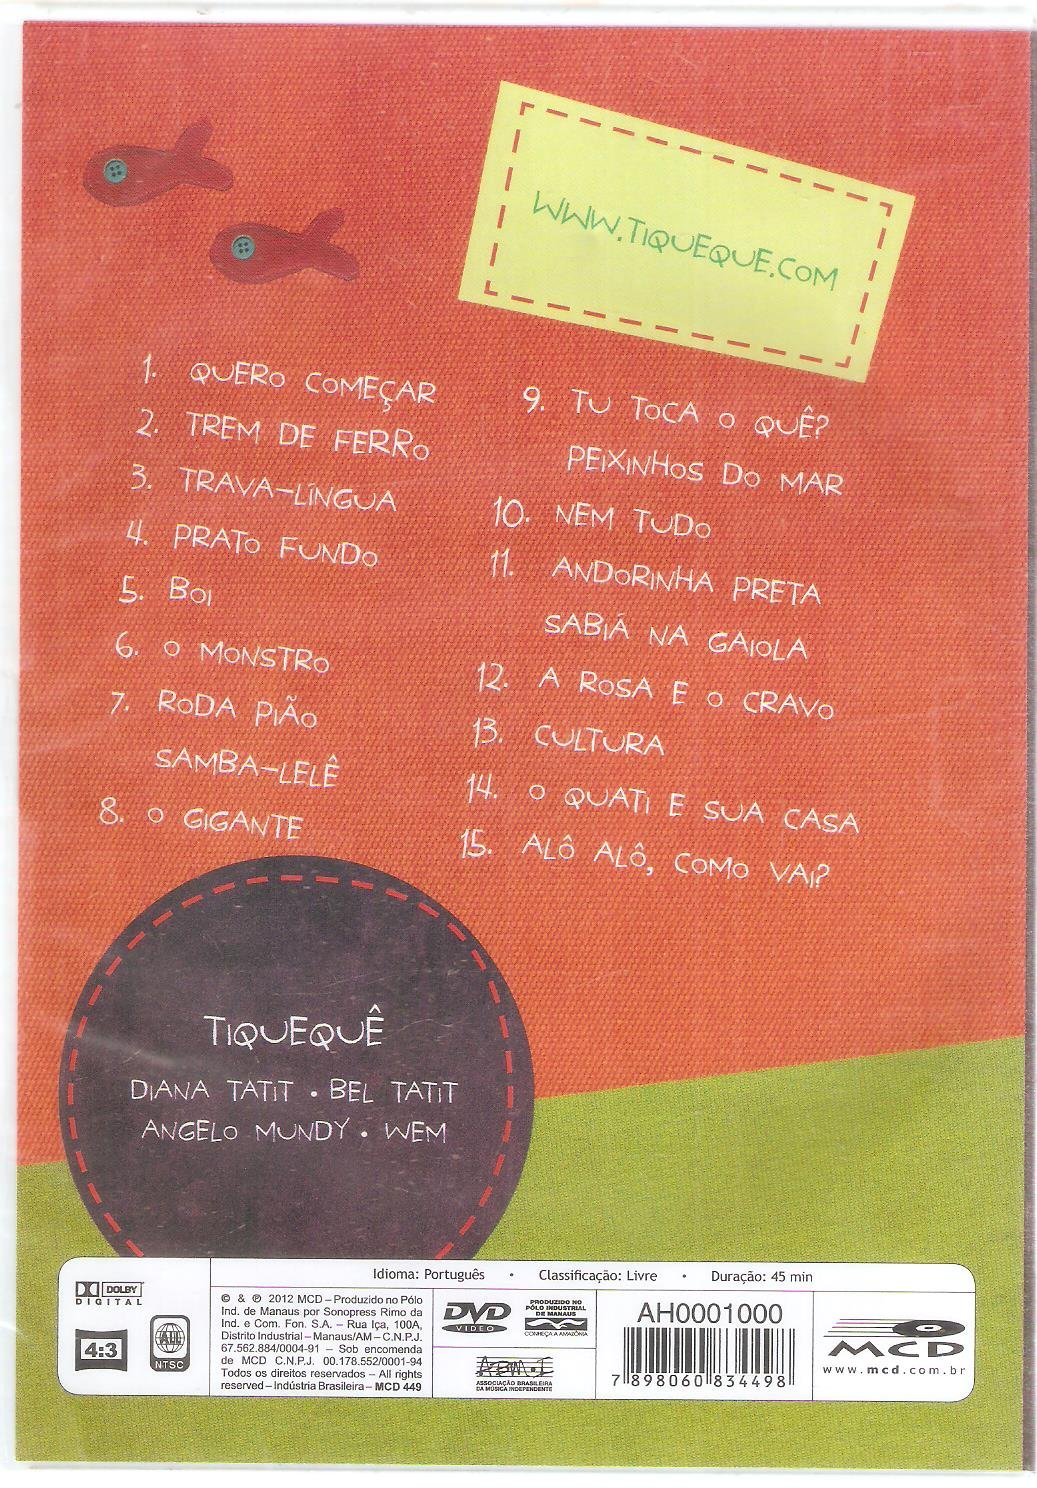 WWW.TIQUEQUE.COM
1. QUERO COMEÇAR
2. TREM DE FERRO
3. TRAVA-LÍNGUA
4. PRATO FUNDO
5. BOI
6. O MONSTRO
7. RODA PIÃO
SAMBA-LELÊ
8. O GIGANTE
9. TU TOCA O QUÊ?
PEIXINHOS DO MAR
10. NEM TUDO
11. ANDORINHA PRETA
SABIÁ NA GAIOLA
12. A ROSA E O CRAVO
13. CULTURA
14. O QUATI E SUA CASA
15. ALÔ ALÔ, COMO VAI?
TIQUEQUÊ
DIANA TATIT • BEL TATIT
ANGELO MUNDY • WEM
Idioma: Português • Classificação: Livre • Duração: 45 min
DOLBY
DIGITAL
4:3
ALL
NTSC
© & ℗ 2012 MCD – Produzido no Pólo
Ind. de Manaus por Sonopress Rimo da
Ind. e Com. Fon. S.A. – Rua Iça, 100A,
Distrito Industrial – Manaus/AM – C.N.P.J.
67.562.884/0004-91 – Sob encomenda
de MCD C.N.P.J. 00.178.552/0001-94
Todos os direitos reservados – All rights
reserved – Indústria Brasileira – MCD 449
DVD
VIDEO
PRODUZIDO NO
PÓLO INDUSTRIAL
DE MANAUS
CONHEÇA A AMAZÔNIA
ABMI
ASSOCIAÇÃO BRASILEIRA
DA MÚSICA INDEPENDENTE
AH0001000
7 898060 834498
MCD
www.mcd.com.br